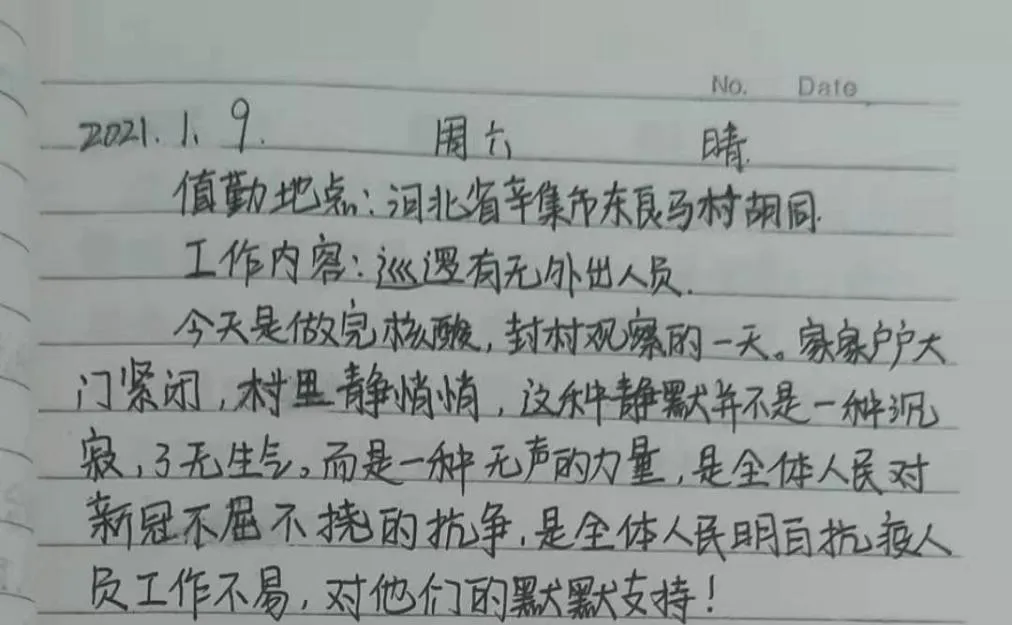 No. Date
2021.1.9. 周六 晴.
值勤地点:河北省辛集市东良马村胡同.
工作内容:巡逻有无外出人员.
今天是做完核酸,封村观察的一天。家家户户大
门紧闭,村里静悄悄,这种静默并不是一种沉
寂,了无生气。而是一种无声的力量,是全体人民对
新冠不屈不挠的抗争,是全体人民明白抗疫人
员工作不易,对他们的默默支持!